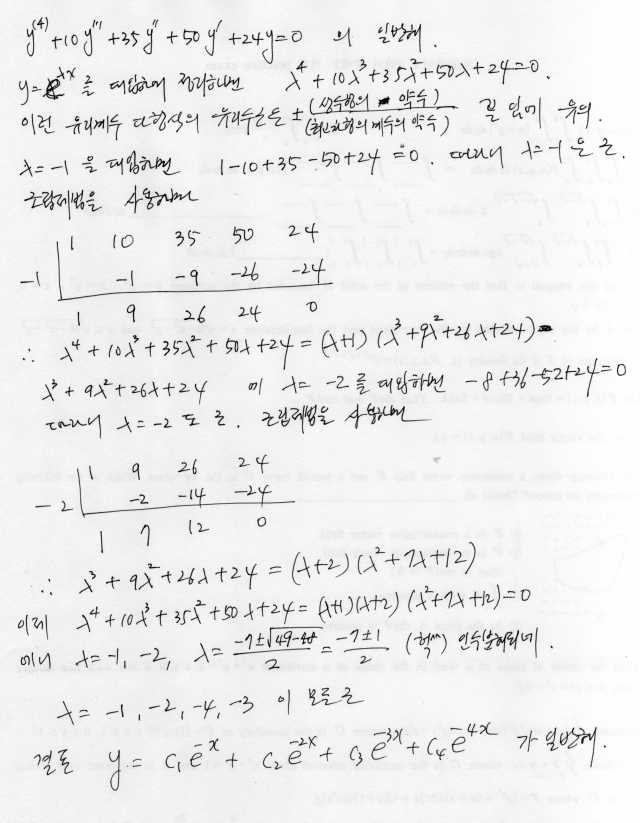 y⁽⁴⁾+10y'''+35y''+50y'+24y=0 의 일반해.
y=e^{λx} 를 대입하여 정리하면 λ⁴+10λ³+35λ²+50λ+24=0.
이런 유리계수 다항식의 유리수근은 ± (상수항의 약수)/(최고차항의 계수의 약수) 꼴 임에 유의.
λ=-1 을 대입하면 1-10+35-50+24=0 따라서 λ=-1 은 근.
조립제법을 사용하면
1 10 35 50 24
-1 -1 -9 -26 -24
1 9 26 24 0
∴ λ⁴+10λ³+35λ²+50λ+24=(λ+1)(λ³+9λ²+26λ+24)
λ³+9λ²+26λ+24 에 λ=-2를 대입하면 -8+36-52+24=0
따라서 λ=-2 도 근. 조립제법을 사용하면
1 9 26 24
-2 -2 -14 -24
1 7 12 0
∴ λ³+9λ²+26λ+24=(λ+2)(λ²+7λ+12)
이제 λ⁴+10λ³+35λ²+50λ+24=(λ+1)(λ+2)(λ²+7λ+12)=0
에서 λ=-1, -2, λ=(-7±√(49-48))/2=(-7±1)/2 (헉^m) 인수분해되네.
λ=-1, -2, -4, -3 이 모든 근
결론 y=c₁e^{-x}+c₂e^{-2x}+c₃e^{-3x}+c₄e^{-4x} 가 일반해.